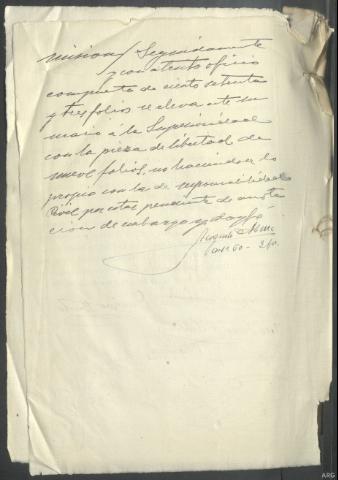 misión / Seguidamente
y con atento oficio
compuesto de ciento setenta
y tres folios se eleva este su
mario á la Superioridad
con la pieza de libertad de
nueve folios, no haciendose lo
propio con la de responsabilidad
Civil por estar pendiente de anota
ción de embargo, doy fé
Augusto
ARG